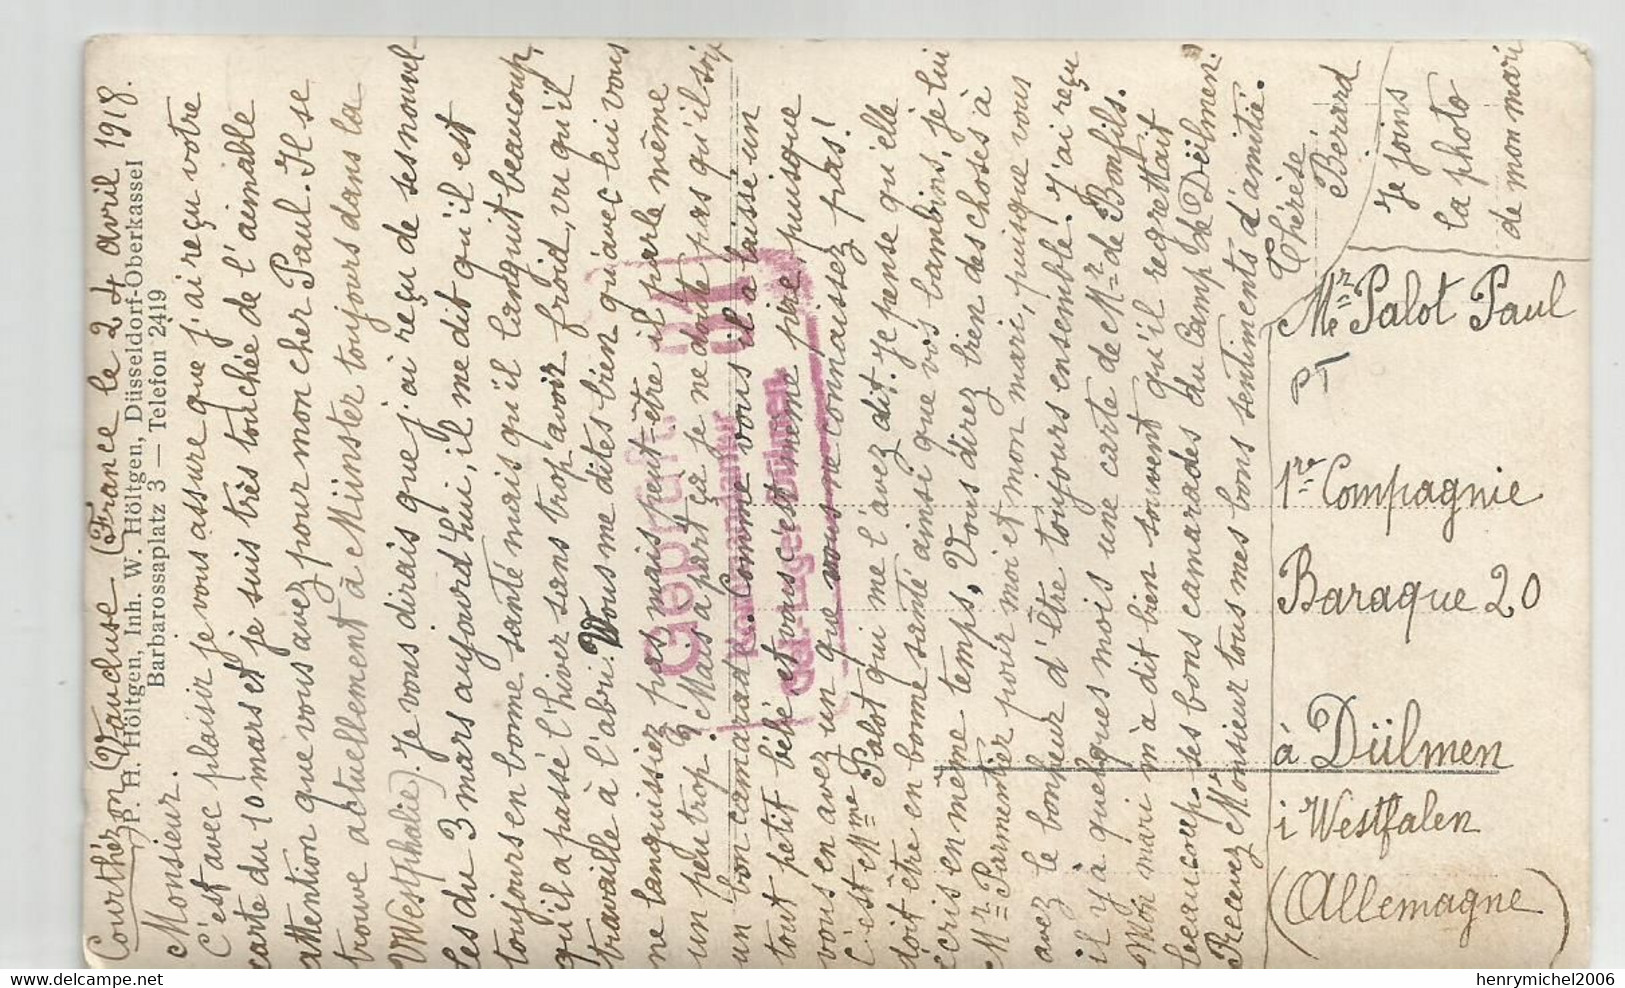 Courthézon (Vaucluse (France le 24 avril 1918.
P. H. Höltgen, Inh. W. Höltgen, Düsseldorf-Oberkassel
Barbarossaplatz 3 — Telefon 2419
Monsieur.
C'est avec plaisir je vous assure que j'ai reçu votre
carte du 10 mars et je suis très touchée de l'aimable
attention que vous avez pour mon cher Paul. Il se
trouve actuellement à Münster toujours dans la
Westphalie). Je vous dirais que j'ai reçu de ses nouvel-
les du 3 mars aujourd'hui, il me dit qu'il est
toujours en bonne santé mais qu'il languit beaucoup,
qu'il a passé l'hiver sans trop avoir froid, vu qu'il
travaille à l'abri. Vous me dites bien qu'avec lui vous
ne languissiez pas mais peut-être il parle même
un peu trop? Mais à part ça je ne doute pas qu'il soit
un bon camarade. Comme vous il a laissé un
tout petit bébé et vous c'est même pire puisque
vous en avez un que vous ne connaissez pas!
C'est Mme Palot qui me l'avez dit. Je pense qu'elle
doit être en bonne santé ainsi que vos bambins, je lui
écris en même temps. Vous direz bien des choses à
Mr Parmentier pour moi et mon mari, puisque vous
avez le bonheur d'être toujours ensemble! J'ai reçu
il y à quelques mois une carte de Mr de Bonfils.
Mon mari m'a dit bien souvent qu'il regrettait
beaucoup ses bons camarades du Camp de Dülmen.
Recevez Monsieur tous mes bons sentiments d'amitié.
Thérèse
Bérard
Je joins
la photo
de mon mari
Geprüft 31
Kommandantur
Gef.-Lager Dülmen.
Mr Palot Paul
PT
1re Compagnie
Baraque 20
á Dülmen
i Westfalen
(Allemagne)
henrymichel2006